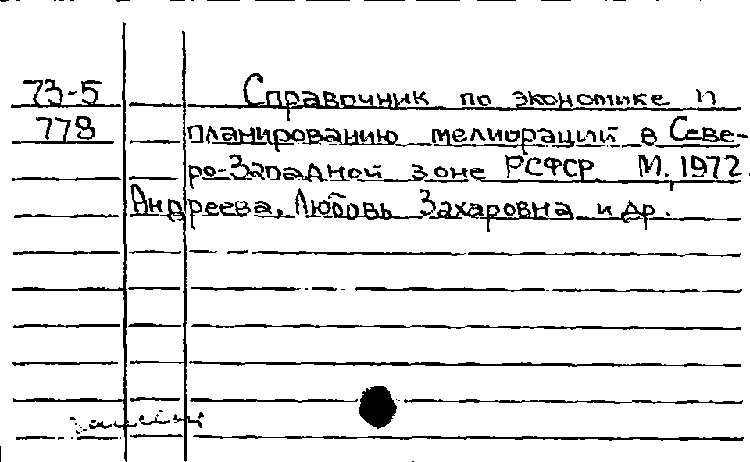 73-5 Справочник по экономике и
778 планированию мелиораций в Севе-
ро-Западной зоне РСФСР М., 1972.
Андреева, Любовь Захаровна и др.